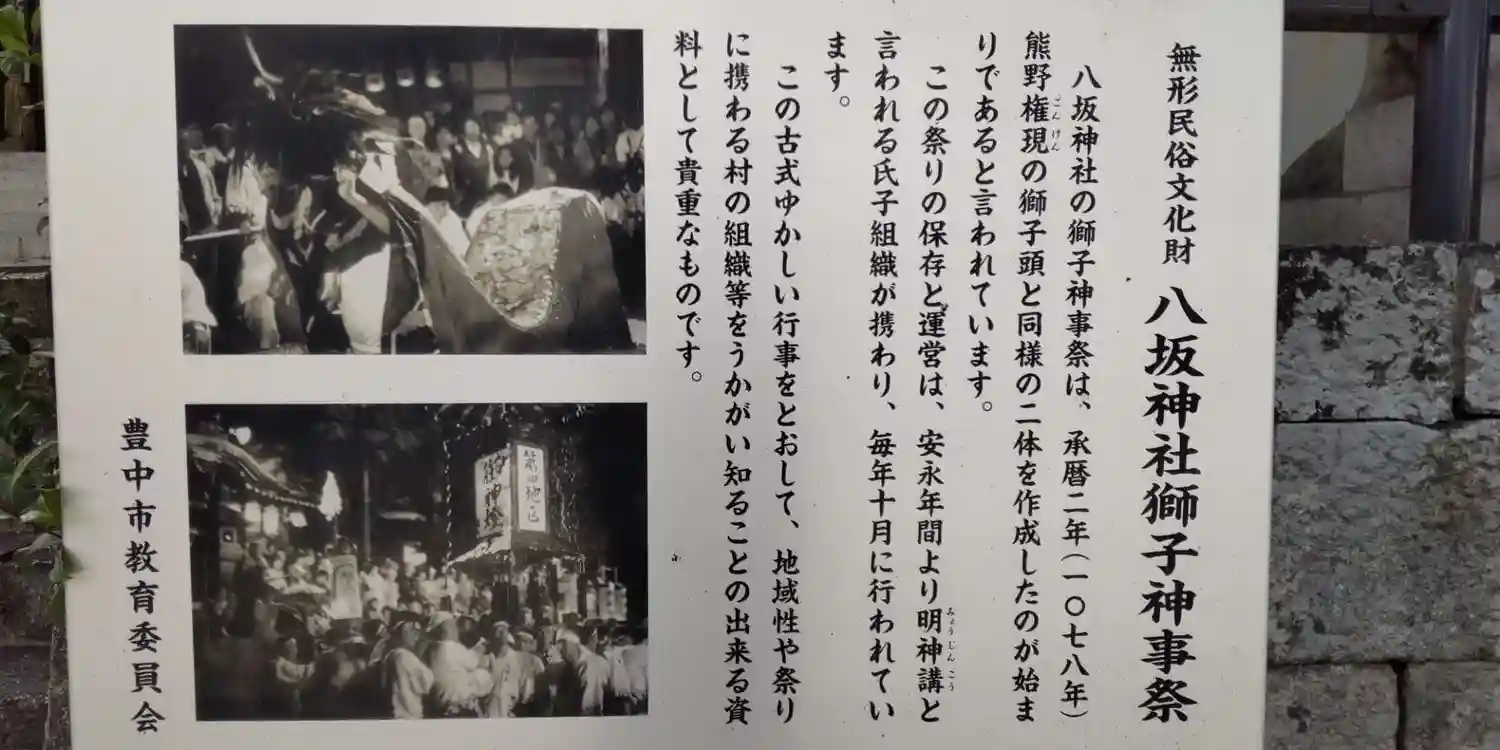 無形民俗文化財 八坂神社獅子神事祭
八坂神社の獅子神事祭は、承暦二年(一〇七八年)
熊野権現の獅子頭と同様の二体を作成したのが始ま
ごんげん
りであると言われています。
この祭りの保存と運営は、安永年間より明神講と
みょうじんこう
言われる氏子組織が携わり、毎年十月に行われてい
ます。
この古式ゆかしい行事をとおして、地域性や祭り
に携わる村の組織等をうかがい知ることの出来る資
料として貴重なものです。
第四地区
御神燈
豊中市教育委員会